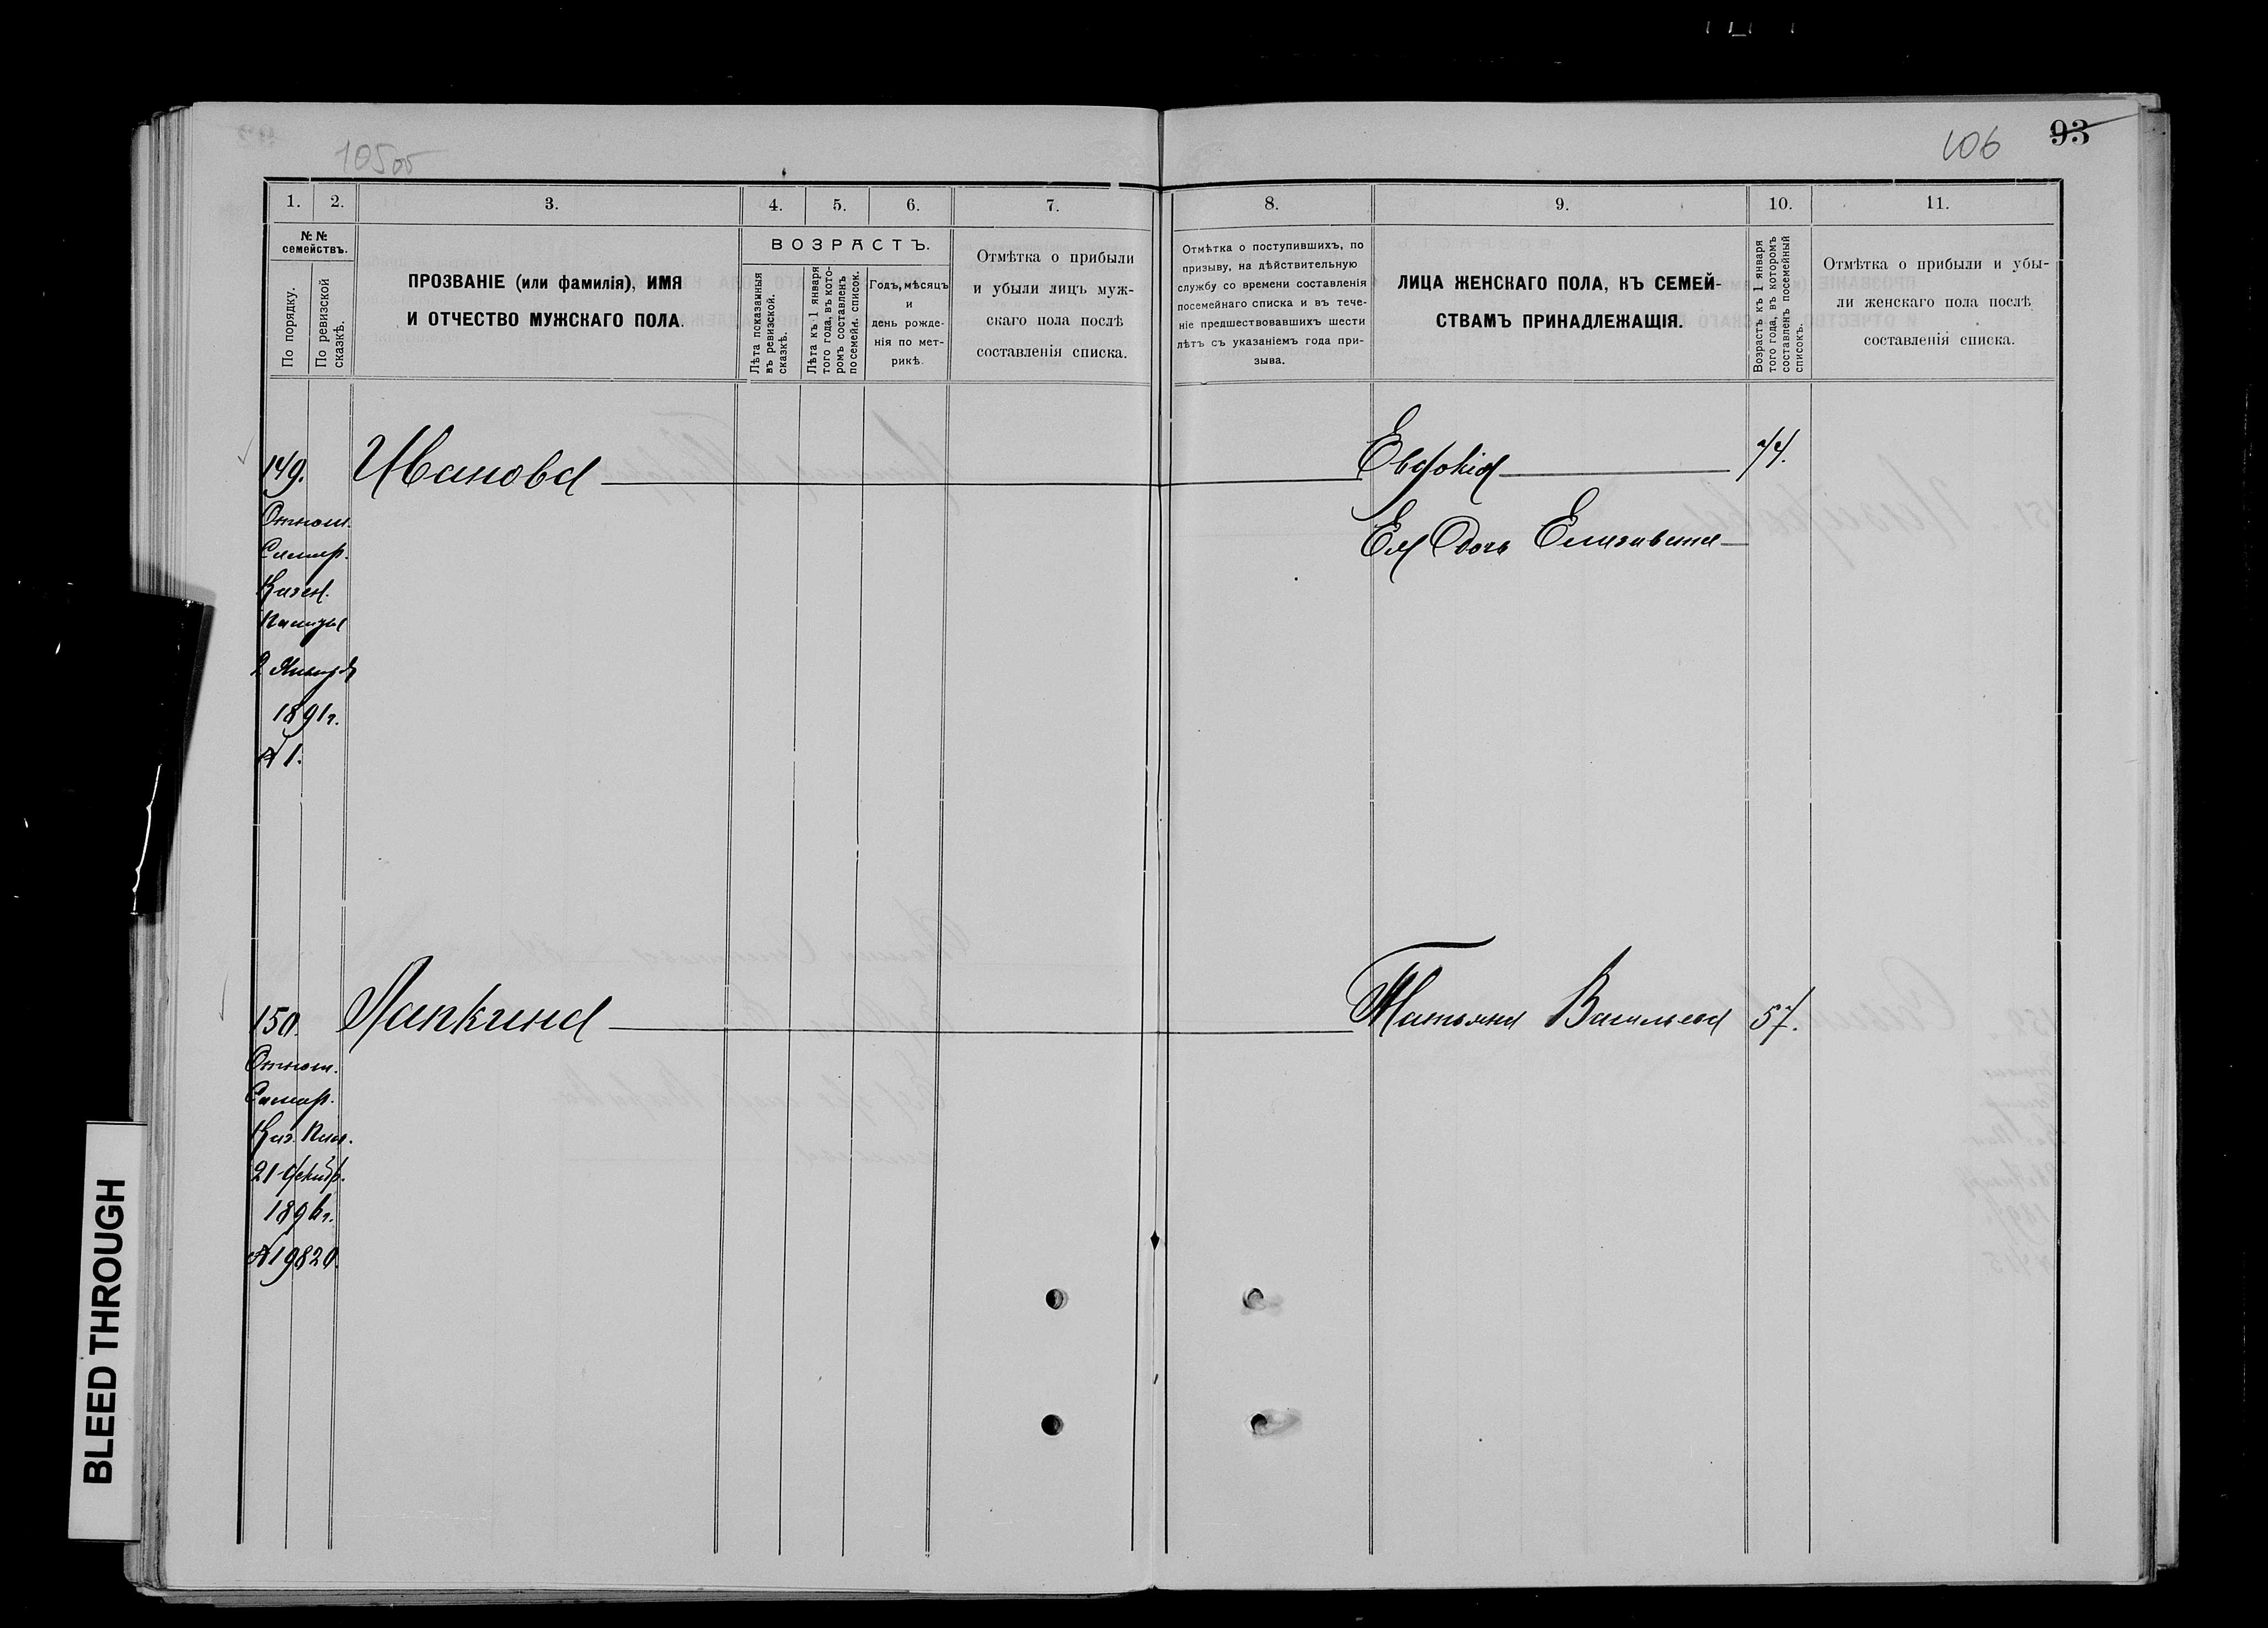 105об
106
93
1. 2. 3. 4. 5. 6. 7. 8. 9. 10. 11.
№№ семействъ.
По порядку.
По ревизской сказкѣ.
ПРОЗВАНІЕ (или фамилія), ИМЯ
И ОТЧЕСТВО МУЖСКАГО ПОЛА.
ВОЗРАСТЪ.
Лѣта показанныя
въ ревизской
сказкѣ.
Лѣта къ 1 января
того года, въ кото-
ромъ составленъ
посемейн. список.
Годъ, мѣсяцъ
и
день рожде-
нія по мет-
рикѣ.
Отмѣтка о прибыли
и убыли лицъ муж-
скаго пола послѣ
составленія списка.
Отмѣтка о поступившихъ, по
призыву, на дѣйствительную
службу со времени составленія
посемейнаго списка и въ тече-
ніе предшествовавшихъ шести
лѣтъ съ указаніемъ года при-
зыва.
ЛИЦА ЖЕНСКАГО ПОЛА, КЪ СЕМЕЙ-
СТВАМЪ ПРИНАДЛЕЖАЩІЯ.
Возрастъ къ 1 января
того года, въ которомъ
составленъ посемейный
списокъ.
Отмѣтка о прибыли и убы-
ли женскаго пола послѣ
составленія списка.
149. Иванова Евдокія 74.
Ея дочь Елизавета
Отнош.
Самар.
Казен.
Палаты
2 Января
1891г.
№ 1.
150. Лапкина Татьяна Васильева 57.
Отнош.
Самар.
Каз. Пал.
21 декабр.
1896г.
№ 19820.
BLEED THROUGH